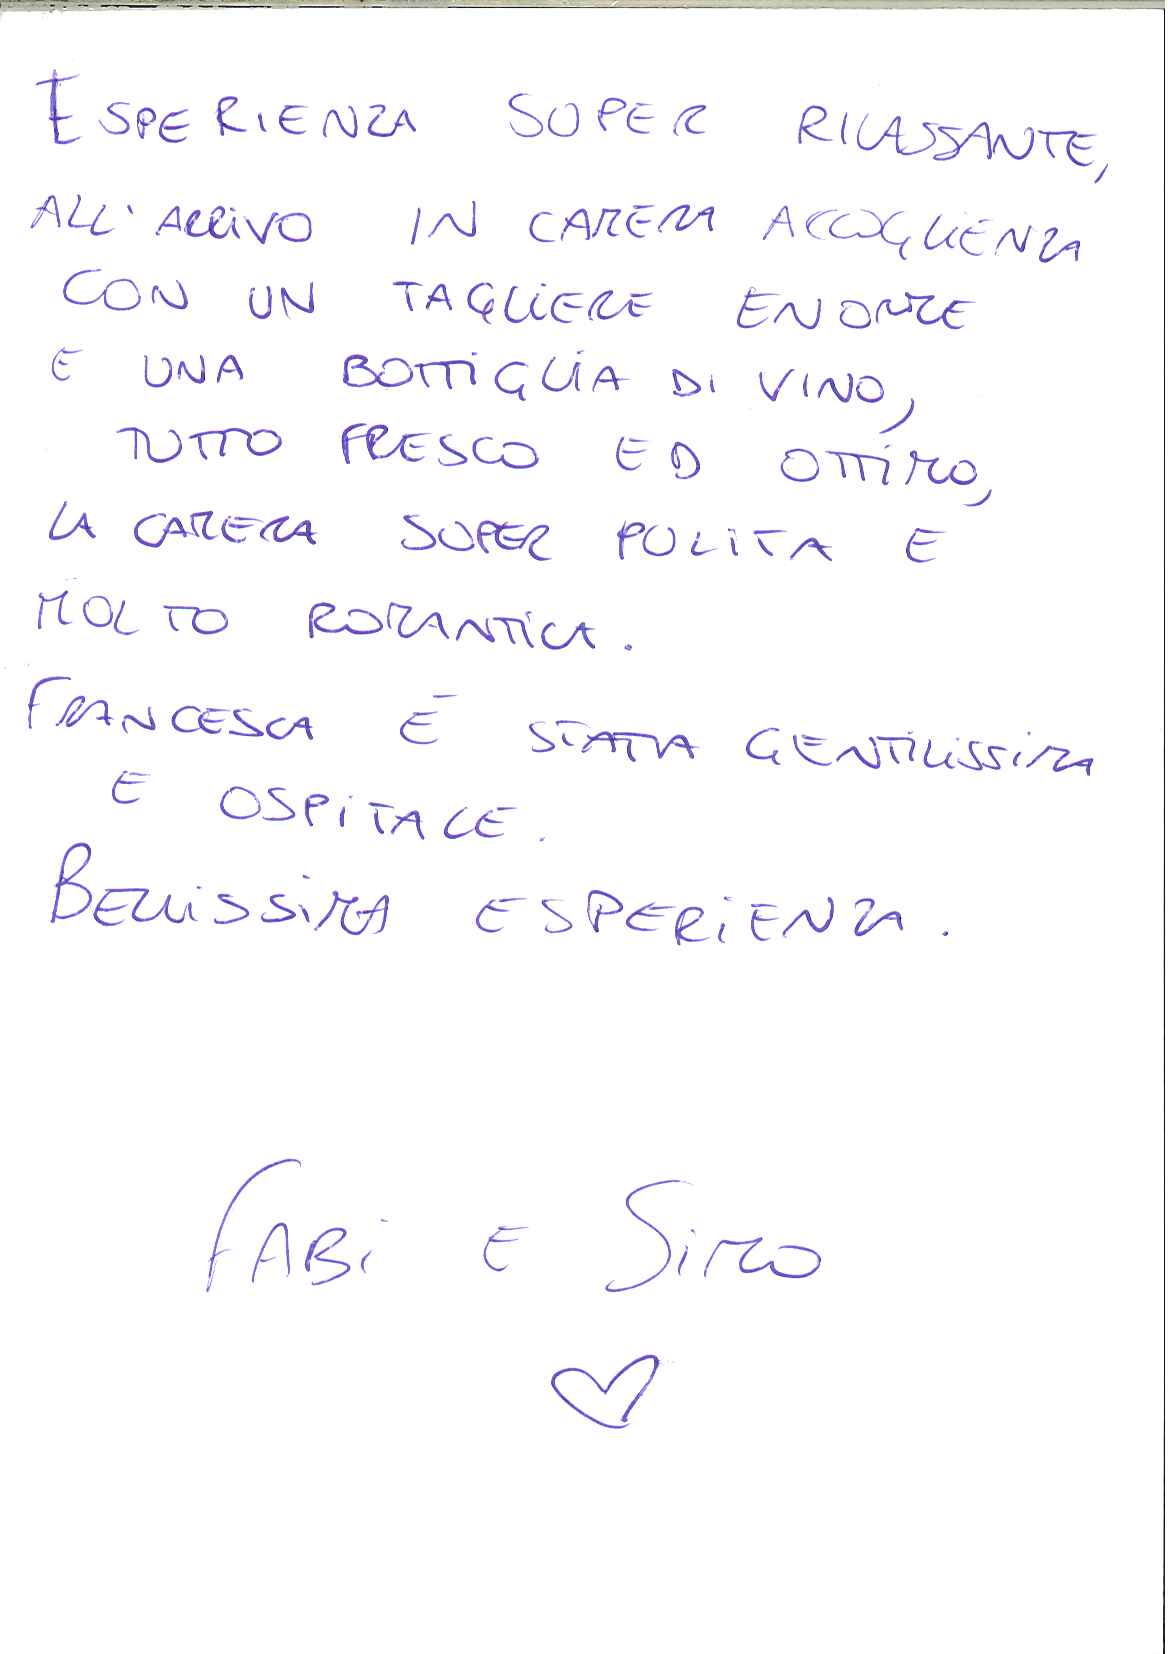 ESPERIENZA SUPER RILASSANTE,
ALL'ARRIVO IN CAMERA ACCOGLIENZA
CON UN TAGLIERE ENORME
E UNA BOTTIGLIA DI VINO,
TUTTO FRESCO ED OTTIMO,
LA CAMERA SUPER PULITA E
MOLTO ROMANTICA.
FRANCESCA È STATA GENTILISSIMA
E OSPITALE.
BELLISSIMA ESPERIENZA.
FABI E SIMO